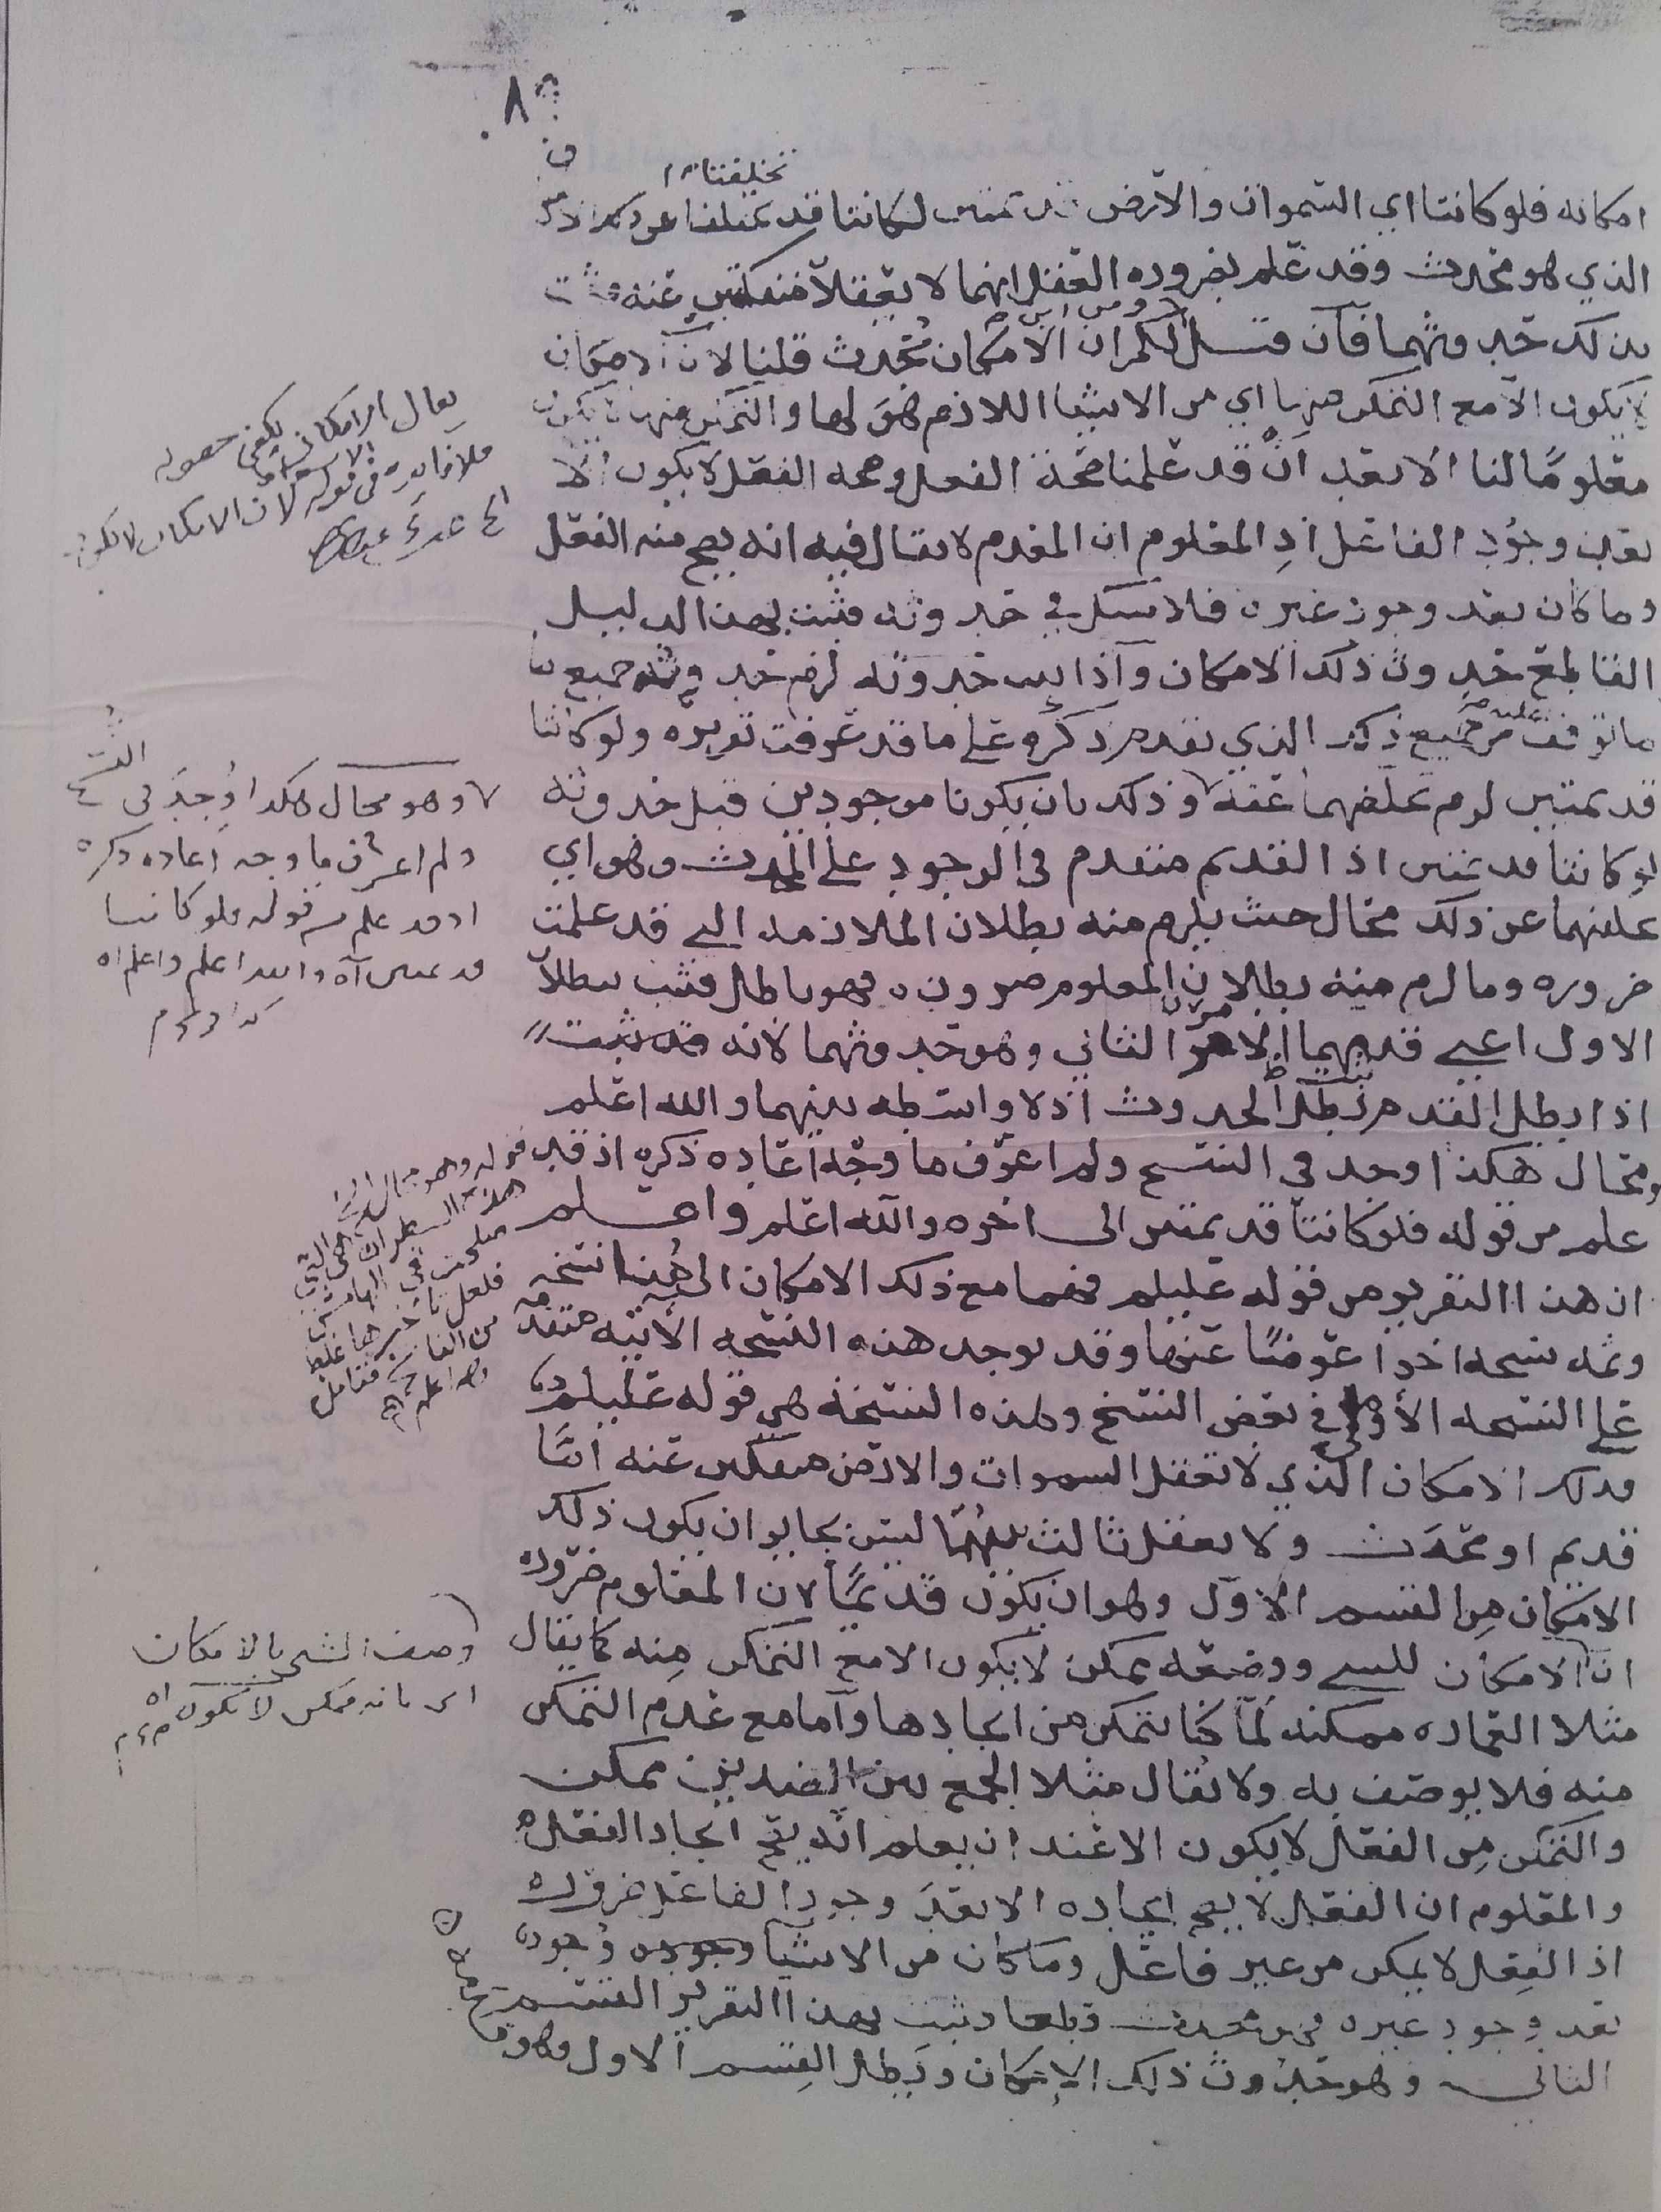 ٨
تخليفتا
امكانه فلو كانتا اي السموات والارض قديمتين لكانتا قد تخلفتا عن ذكر الامكان
الذي هو محدث وقد علم بضرورة العقل انهما لا يعقلا منفكتين عنه فثبت
بذلك حدوثهما فان قيل لكم ان الامكان محدث قلنا لان الامكان
لا يكون الا مع التمكن منها اي من الاشيا اللازم هو لها والتمكن منها لا يكون
معلومًا لنا الا بعد ان قد علمنا صحة الفعل وصحة الفعل لا يكون الا
بعد وجود الفاعل اذ المعلوم ان المعدم لا يقال فيه انه يصح منه الفعل
وما كان بعد وجود غيره فلا شك في حدوثه فثبت بهذا الدليل
القاطع حدوث ذلك الامكان واذا ثبت حدوثه لزم حدوث جميع
ما توقف عليه من جميع ذكر الذي تقدم ذكره على ما قد عرفت تقريره ولو كانتا
قديمتين لزم تخلفهما عنه وذلك بان يكونا موجودين قبل حدوثه
لو كانتا قديمتين اذ القديم متقدم في الوجود على المحدث وهو اي
تخلفهما عن ذلك محال حيث يلزم منه بطلان الملازمة التي قد علمت
ضرورة وما لزم منه بطلان المعلوم ضرورة فهو باطل فثبت بطلان
الاول اعني قدمهما الثاني وهو حدوثهما لانه قد ثبت
اذا بطل القدم ثبت الحدوث اذ لا واسطة بينهما والله اعلم
ومحال هكذا وجد في النسخ ولم اعرف ما وجه اعادة ذكره اذ قد
علم من قوله فلو كانتا قديمتين الى اخره والله اعلم واعلم
ان هذا التقرير من قوله عليلم فهما مع ذلك الامكان الى هنا نسخه
وثمه نسخه اخرا عوضًا عنها وقد يوجد هذه النسخه الاتيه متقدمه
على النسخه الأولى في بعض النسخ وهذه النسخة هي قوله عليلم
فذلك الامكان الذي لا تعقل السموات والارض منفكتين عنه امّا
قديم او محدث ولا يعقل ثالث بينهما ليس بجايز ان يكون ذلك
الامكان من القسم الاول وهو ان يكون قديمًا لان المعلوم ضرورة
ان الامكان للشي ووصفه بممكن لا يكون الا مع التمكن منه كما يقال
مثلا العماره ممكنه لمّا كنا نتمكن من ايجادها وأما مع عدم التمكن
منه فلا يوصف به ولا يقال مثلا الجمع بين الضدين ممكن
والتمكن من الفعل لا يكون الا عند ان يعلم انه يصح ايجاد الفعل
والمعلوم ان الفعل لا يصح ايجاده الا بعد وجود الفاعل ضرورة
اذ الفعل لا يمكن من غير فاعل وما كان من الاشيا وجوده
بعد وجود غيره فهو محدث قطعا وثبت بهذا التقرير القسم
الثاني وهو حدوث ذلك الامكان وبطل القسم الاول وهو
يقال ان الامكان يكفي حصوله
فلا فايدة في قوله لان الامكان لا يكون
وهو محال هكذا وجد في النسخ
ولم اعرف ما وجه اعادة ذكره
اذ قد علم من قوله فلو كانتا
قديمتين اه والله اعلم واعلم اه
قوله وهو محال
هذه السطر التي
في الهامش
فلعل تاخيرها غلط
من الناسخ فتامل
والله اعلم
وصف الشي بالامكان
اي بانه ممكن لا يكون اه